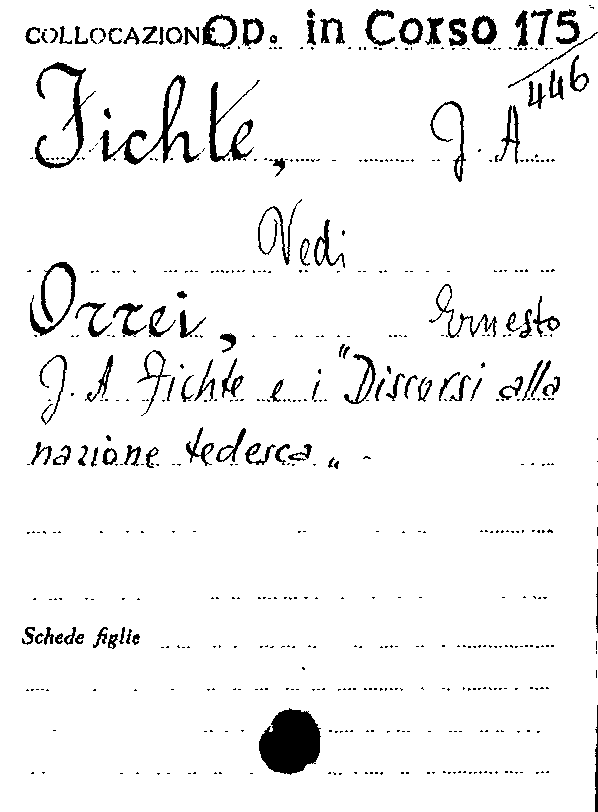 COLLOCAZIONE Op. in Corso 175
446
Fichte, J. A.
Vedi
Orrei, Ernesto
J. A Fichte e i "Discorsi alla
nazione tedesca„ -
Schede figlie